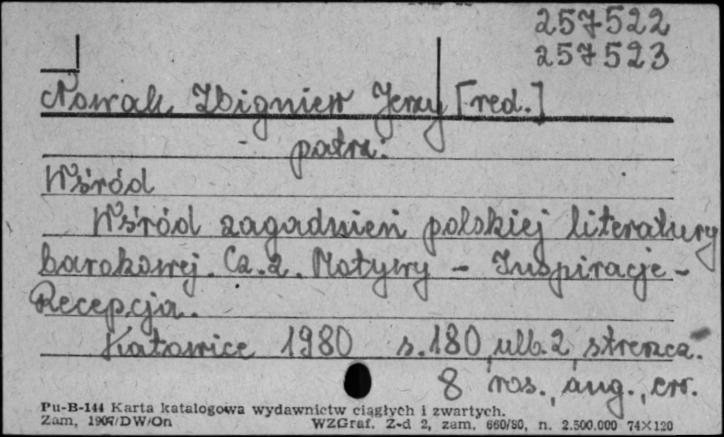 257522
257523
Nowak Zbigniew Jerzy [red.]
patrz:
Wśród
Wśród zagadnień polskiej literatury
barokowej. Cz. 2. Motywy - Inspiracje -
Recepcja.
Katowice 1980 s. 180, ulb. 2, streszcz.
8 ros., ang.,
Pu-B-144 Karta katalogowa wydawnictw ciągłych i zwartych.
Zam, 1907/DW/On WZGraf. Z-d 2, zam. 660/80, n. 2.500.000 74X120